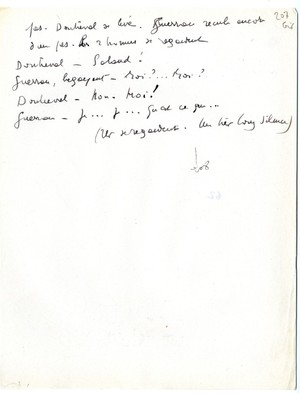 pas. Douhéval se lève. Guerran recule encore
d'un pas. Les 2 hommes se regardent
Douhéval — Salaud !
Guerran, bégayant — Moi ?... Moi ?
Douhéval — Non. Moi !
Guerran — Je... Je... Qu'est ce que...
(Ils se regardent. Un très long silence)
207